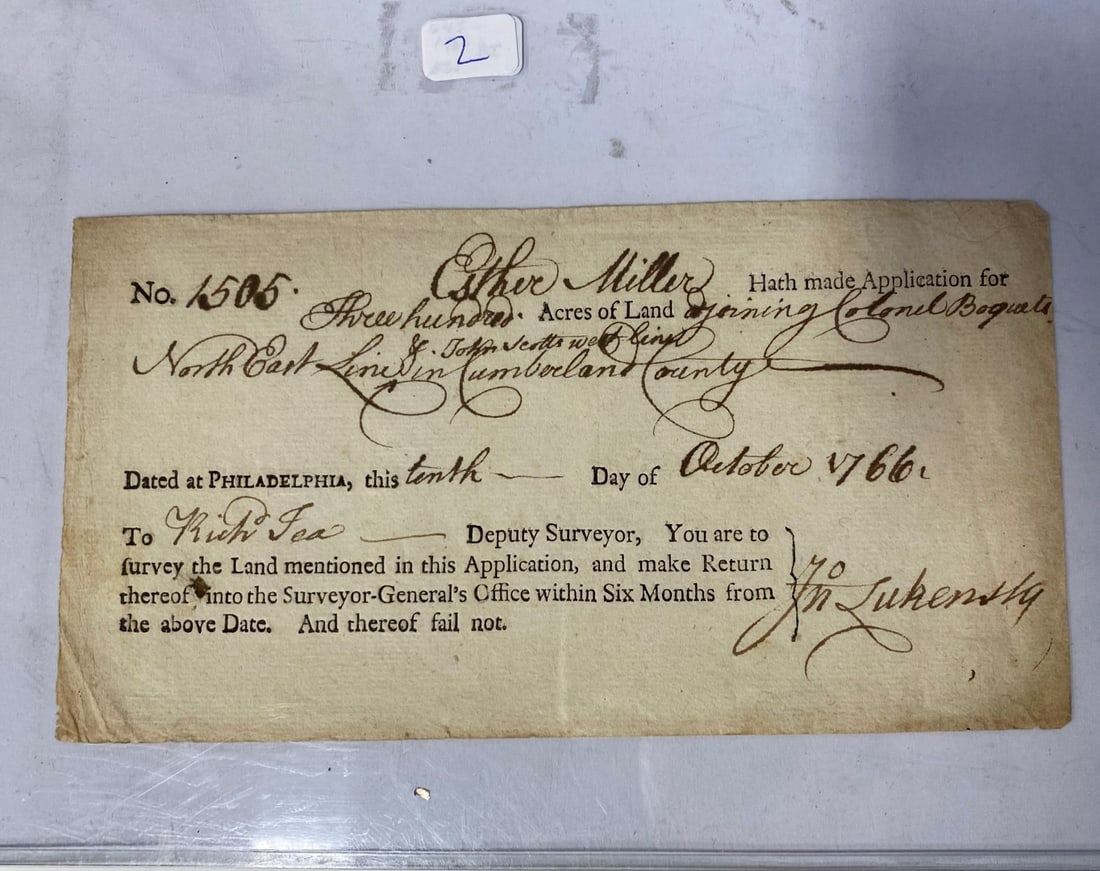 2
No. 1505. Esther Miller Hath made Application for
Three hundred. Acres of Land adjoining Colonel Boquets
&. John Scotts west line
North East Line in Cumberland County
Dated at PHILADELPHIA, this tenth — Day of October 1766.
To Richd Tea — Deputy Surveyor, You are to
survey the Land mentioned in this Application, and make Return
thereof into the Surveyor-General's Office within Six Months from
the above Date. And thereof fail not.
Jno Lukens SG